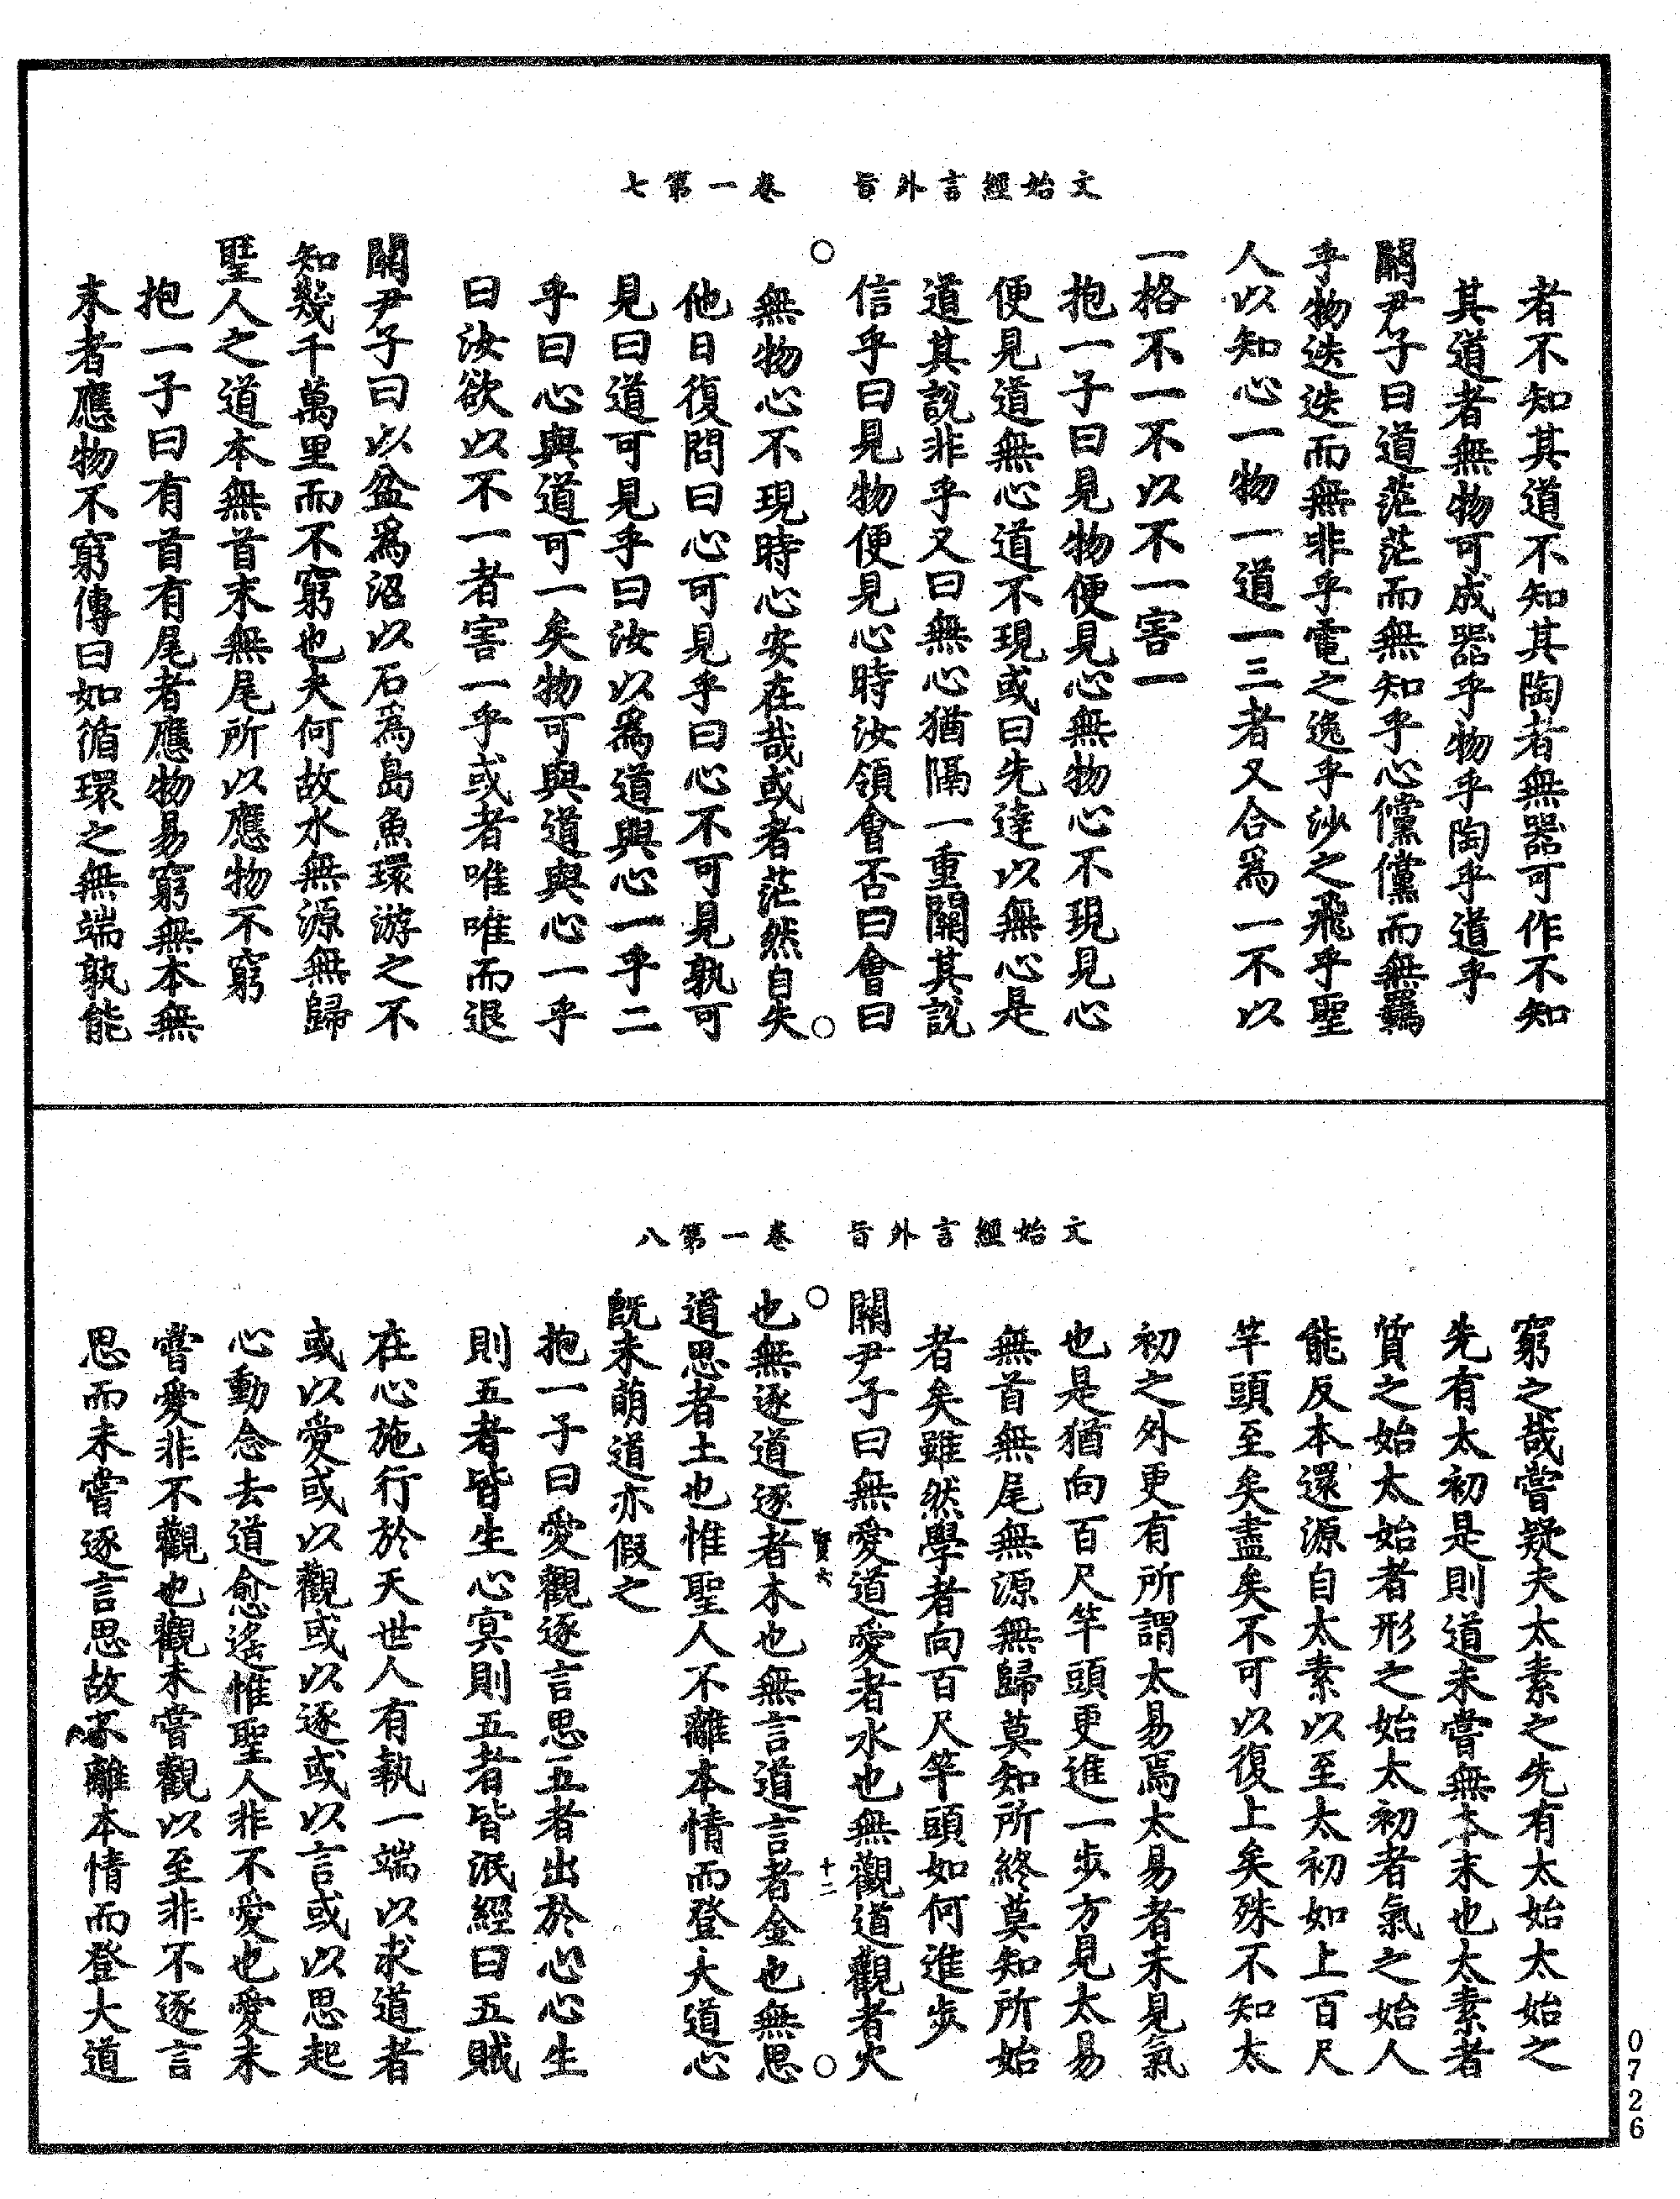 文始經言外旨　卷一第七
者不知其道不知其陶者無器可作不知
其道者無物可成器乎物乎陶乎道乎
關尹子曰道茫茫而無知乎心儻儻而無羈
乎物迭迭而無非乎電之逸乎沙之飛乎聖
人以知心一物一道一三者又合爲一不以
一格不一不以不一害一
抱一子曰見物便見心無物心不現見心
便見道無心道不現或曰先達以無心是
道其說非乎又曰無心猶隔一重關其說
信乎曰見物便見心時汝領會否曰會曰
○　○
無物心不現時心安在哉或者茫然自失
他日復問曰心可見乎曰心不可見孰可
見曰道可見乎曰汝以爲道與心一乎二
乎曰心與道可一矣物可與道與心一乎
曰汝欲以不一者害一乎或者唯唯而退
關尹子曰以盆爲沼以石爲島魚環游之不
知幾千萬里而不窮也夫何故水無源無歸
聖人之道本無首末無尾所以應物不窮
抱一子曰有首有尾者應物易窮無本無
末者應物不窮傳曰如循環之無端孰能
文始經言外旨　卷一第八
窮之哉嘗疑夫太素之先有太始太始之
先有太初是則道未嘗無本末也太素者
質之始太始者形之始太初者氣之始人
能反本還源自太素以至太初如上百尺
竿頭至矣盡矣不可以復上矣殊不知太
初之外更有所謂太易焉太易者未見氣
也是猶向百尺竿頭更進一步方見太易
無首無尾無源無歸莫知所終莫知所始
者矣雖然學者向百尺竿頭如何進步
關尹子曰無愛道愛者水也無觀道觀者火
○　賢六　十二　○
也無逐道逐者木也無言道言者金也無思
道思者土也惟聖人不離本情而登大道心
旣未萌道亦假之
抱一子曰愛觀逐言思五者出於心心生
則五者皆生心冥則五者皆泯經曰五賊
在心施行於天世人有執一端以求道者
或以愛或以觀或以逐或以言或以思起
心動念去道愈遙惟聖人非不愛也愛未
嘗愛非不觀也觀未嘗觀以至非不逐言
思而未嘗逐言思故不離本情而登大道
0726